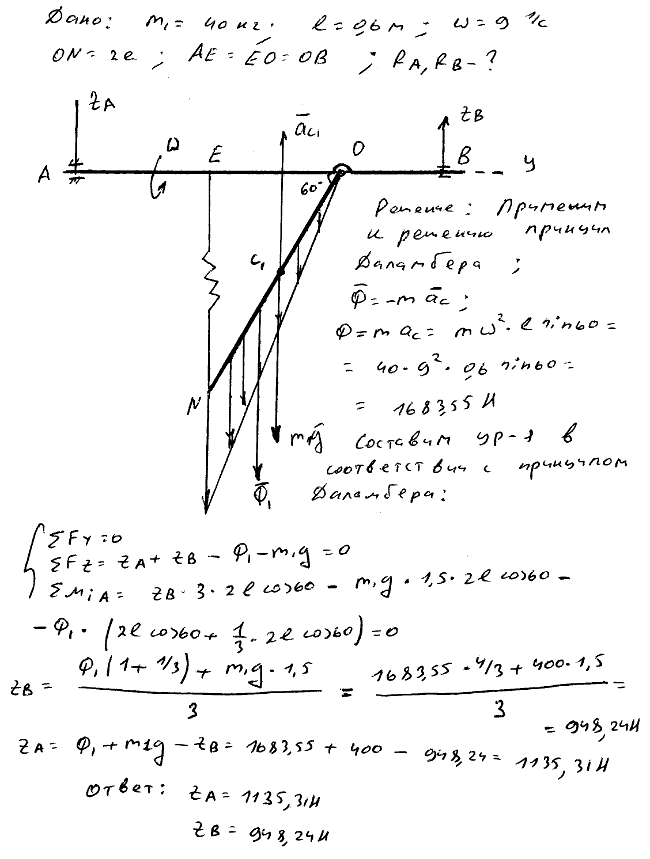 Дано: m₁ = 40 кг. l = 0,6 м; ω = 9 1/c
ON = 2l; AE = EO = OB; RA, RB - ?
ZA
ZB
āc₁
A
ω
E
O
B
y
60°
C₁
N
m₁ḡ
Φ̄₁
Решение: Применим
к решению принцип
Даламбера;
Φ̄ = -m āc;
Φ = m ac = m ω² · l sin60 =
= 40 · 9² · 0,6 sin60 =
= 1683,55 Н
Составим ур-я в
соответствии с принципом
Даламбера:
ΣFy = 0
ΣFz = ZA + ZB - Φ₁ - m₁g = 0
ΣMiA = ZB · 3 · 2l cos60 - m₁g · 1,5 · 2l cos60 -
- Φ₁ · (2l cos60 + 1/3 · 2l cos60) = 0
ZB = (Φ₁(1 + 1/3) + m₁g · 1,5) / 3 = (1683,55 · 4/3 + 400 · 1,5) / 3 =
= 948,24Н
ZA = Φ₁ + m1g - ZB = 1683,55 + 400 - 948,24 = 1135,31Н
Ответ: ZA = 1135,31Н
ZB = 948,24Н